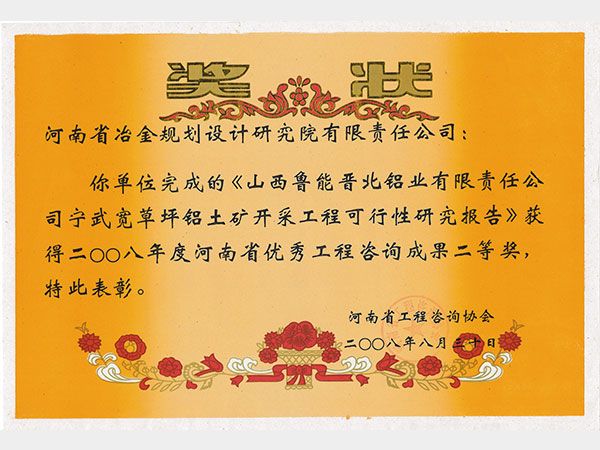 奖状
河南省冶金规划设计研究院有限责任公司：
你单位完成的《山西鲁能晋北铝业有限责任公
司宁武宽草坪铝土矿开采工程可行性研究报告》获
得二〇〇八年度河南省优秀工程咨询成果二等奖，
特此表彰。
河南省工程咨询协会
二〇〇八年八月三十日